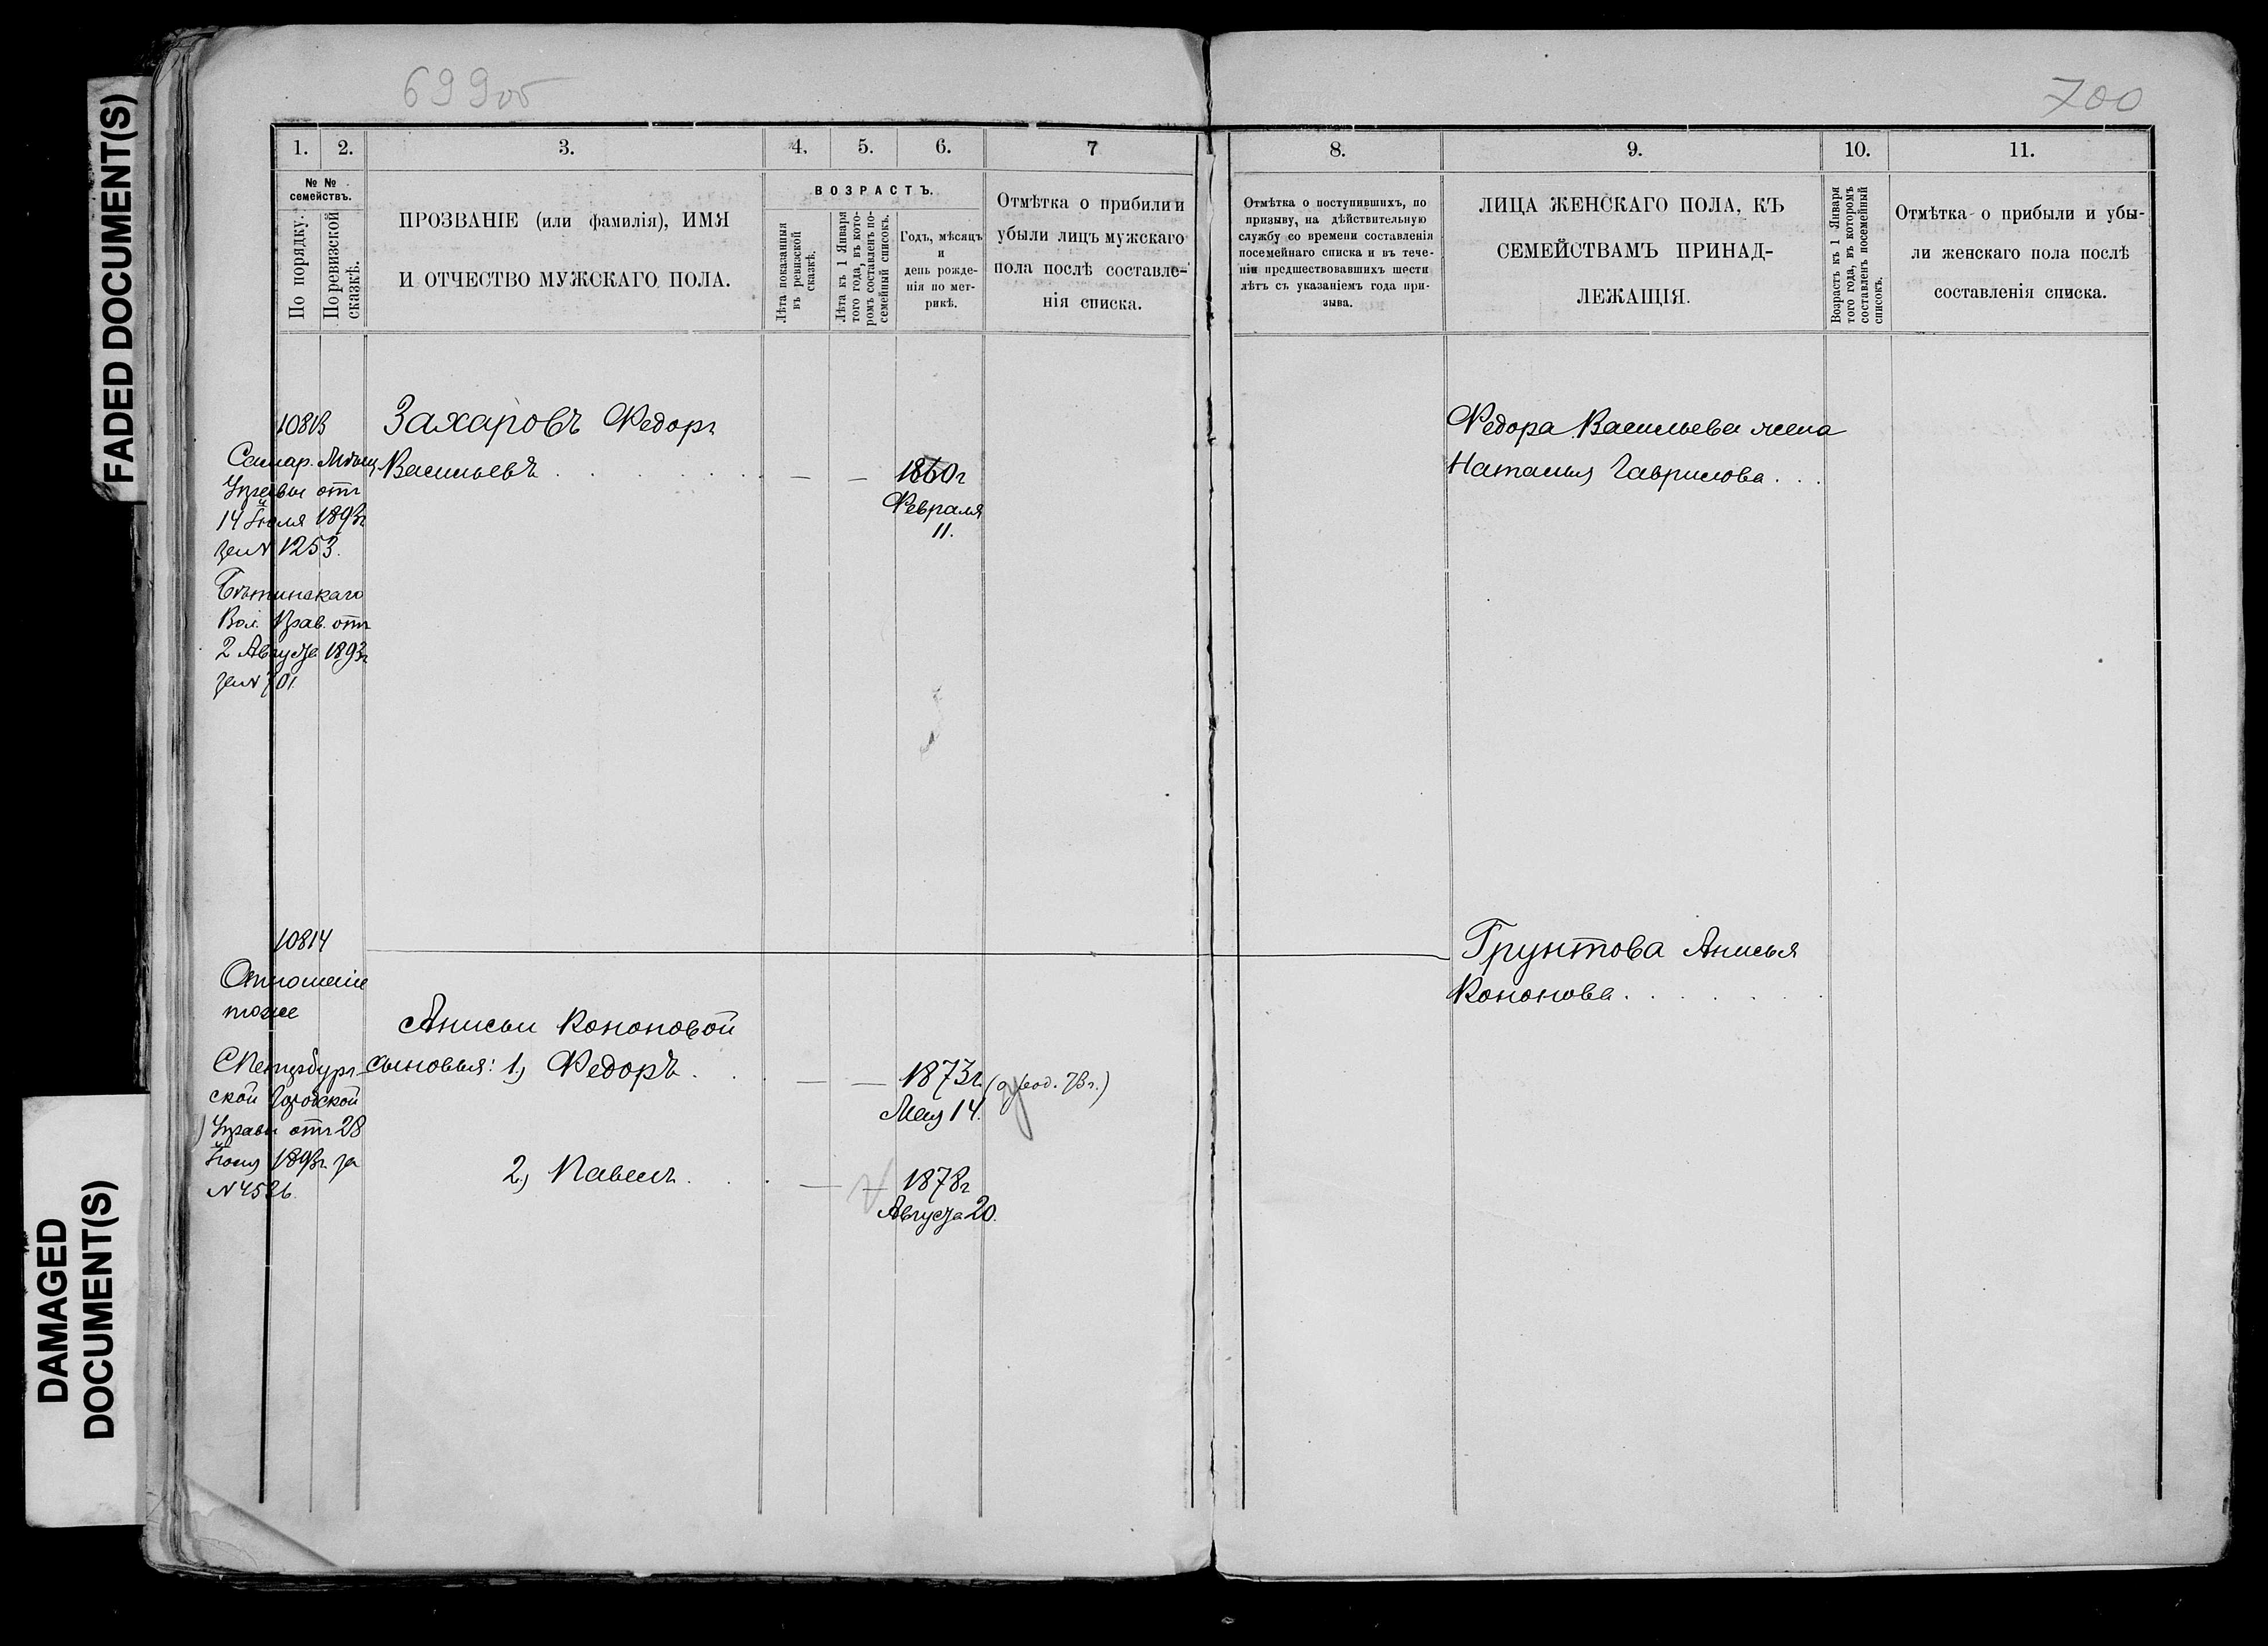 FADED DOCUMENT(S)
DAMAGED
DOCUMENT(S)
699об
1. 2. 3. 4. 5. 6. 7
№ №
семействъ.
По порядку.
По ревизской
сказкѣ.
ПРОЗВАНІЕ (или фамилія), ИМЯ
И ОТЧЕСТВО МУЖСКАГО ПОЛА.
ВОЗРАСТЪ.
Лѣта показанныя
въ ревизской
сказкѣ.
Лѣта къ 1 Января
того года, въ кото-
ромъ составленъ по-
семейный списокъ.
Годъ, мѣсяцъ
и
день рожде-
нія по мет-
рикѣ.
Отмѣтка о прибыли и
убыли лицъ мужскаго
пола послѣ составле-
нія списка.
10813
Самар. Мѣщ
Управы отъ
14 Іюля 1893г
за № 1253.
Вол. Прав. отъ
2 Августа 1893г
за № 701
Захаровъ Федоръ
Васильевъ . . . . — — 1860г
Февраля
11.
10814
Отношеніе
тоже
СПетербург-
ской Городской
Управы отъ 28
1893г. за
Анисьи Кононовой
сыновья: 1) Федоръ . . . — — 1873г.
Мая 14.
2) Павелъ . . . — — 1878г
Августа 20.
700
8. 9. 10. 11.
Отмѣтка о поступившихъ, по
призыву, на дѣйствительную
службу со времени составленія
посемейнаго списка и въ тече-
ніи предшествовавшихъ шести
лѣтъ съ указаніемъ года при-
зыва.
ЛИЦА ЖЕНСКАГО ПОЛА, КЪ
СЕМЕЙСТВАМЪ ПРИНАД-
ЛЕЖАЩІЯ.
Возрастъ къ 1 Января
того года, въ которомъ
составленъ посемейный
списокъ.
Отмѣтка о прибыли и убы-
ли женскаго пола послѣ
составленія списка.
Федора Васильева жена
Наталья Гаврилова . . .
Грунтова Анисья
Кононова . . . . .